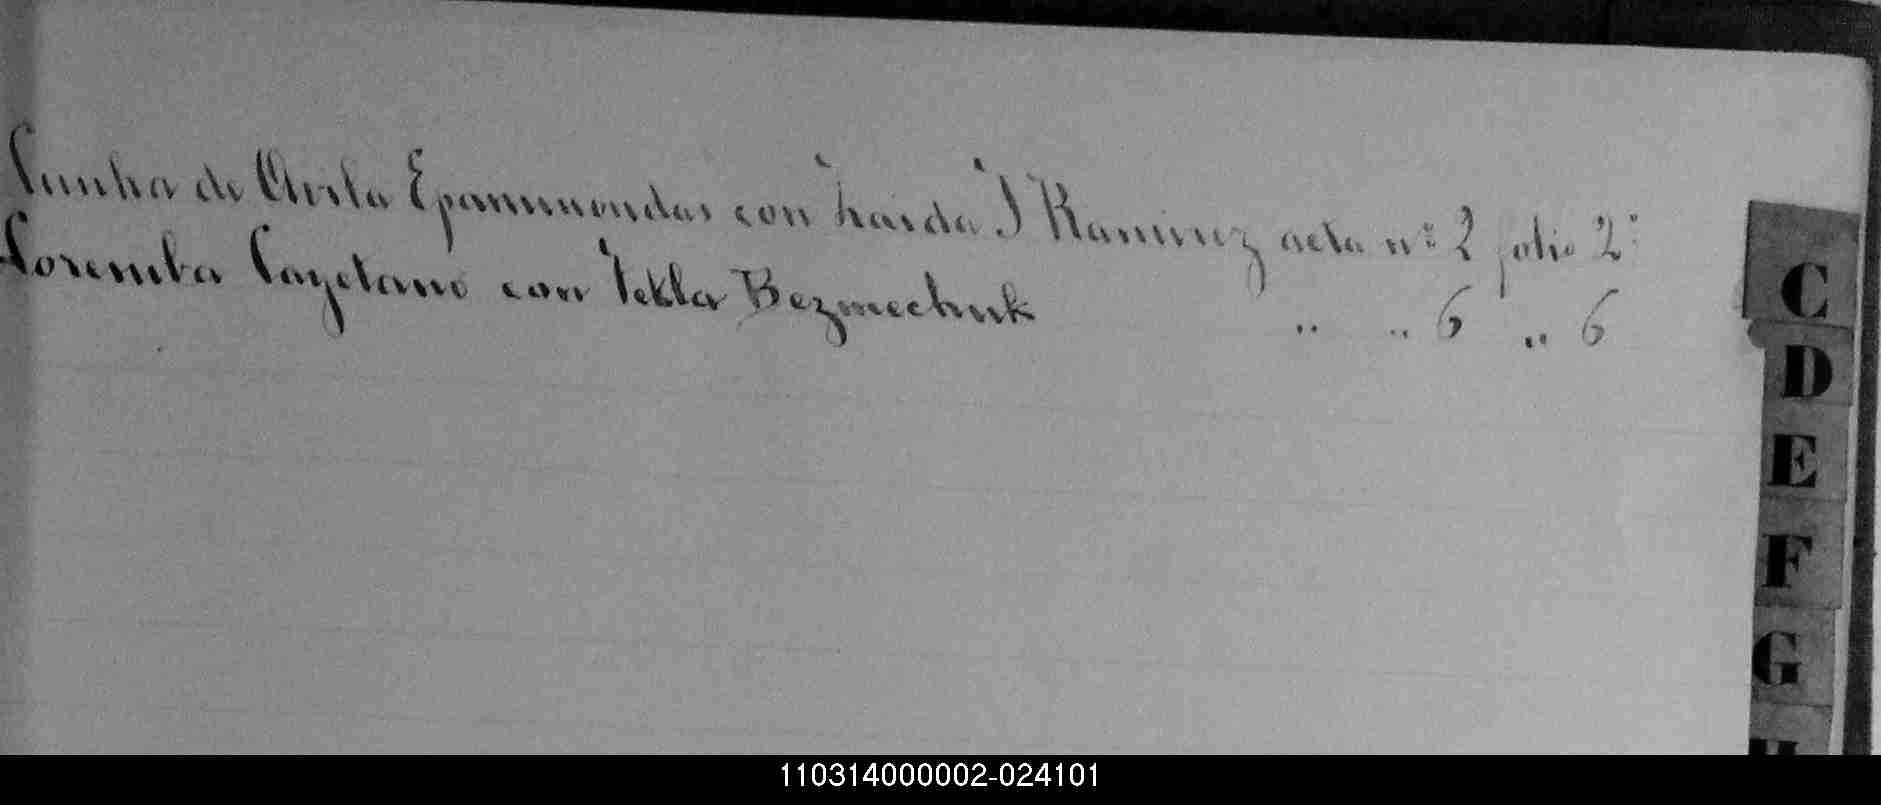 Cunha de Avila Epaminondas con Zaida J Ramirez acta nº 2 folio 2º
Coremba Cayetano con Tekla Bezmechuk " " 6 " 6
C
D
E
F
G
H
110314000002-024101